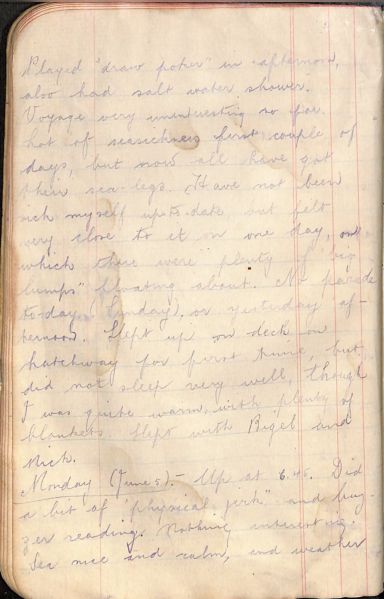 Played "draw poker" in afternoon,
also had salt water shower.
Voyage very uninteresting so far.
hot of seasickness first couple of
days, but now all have got
their sea-legs. Have not been
sick myself up-to-date, but felt
very close to it on one day, on
which there were plenty of "big
lumps" floating about. No parade
to-day (Sunday), or yesterday af-
ternoon. Slept up on deck on
hatchway for first time, but
did not sleep very well, though
I was quite warm, with plenty of
blankets. Slept with Bigel and
Mick.
Monday (June 5):- Up at 6.45. Did
a bit of "physical jerk" and buz-
zer reading. Nothing interesting.
Sea nice and calm, and weather